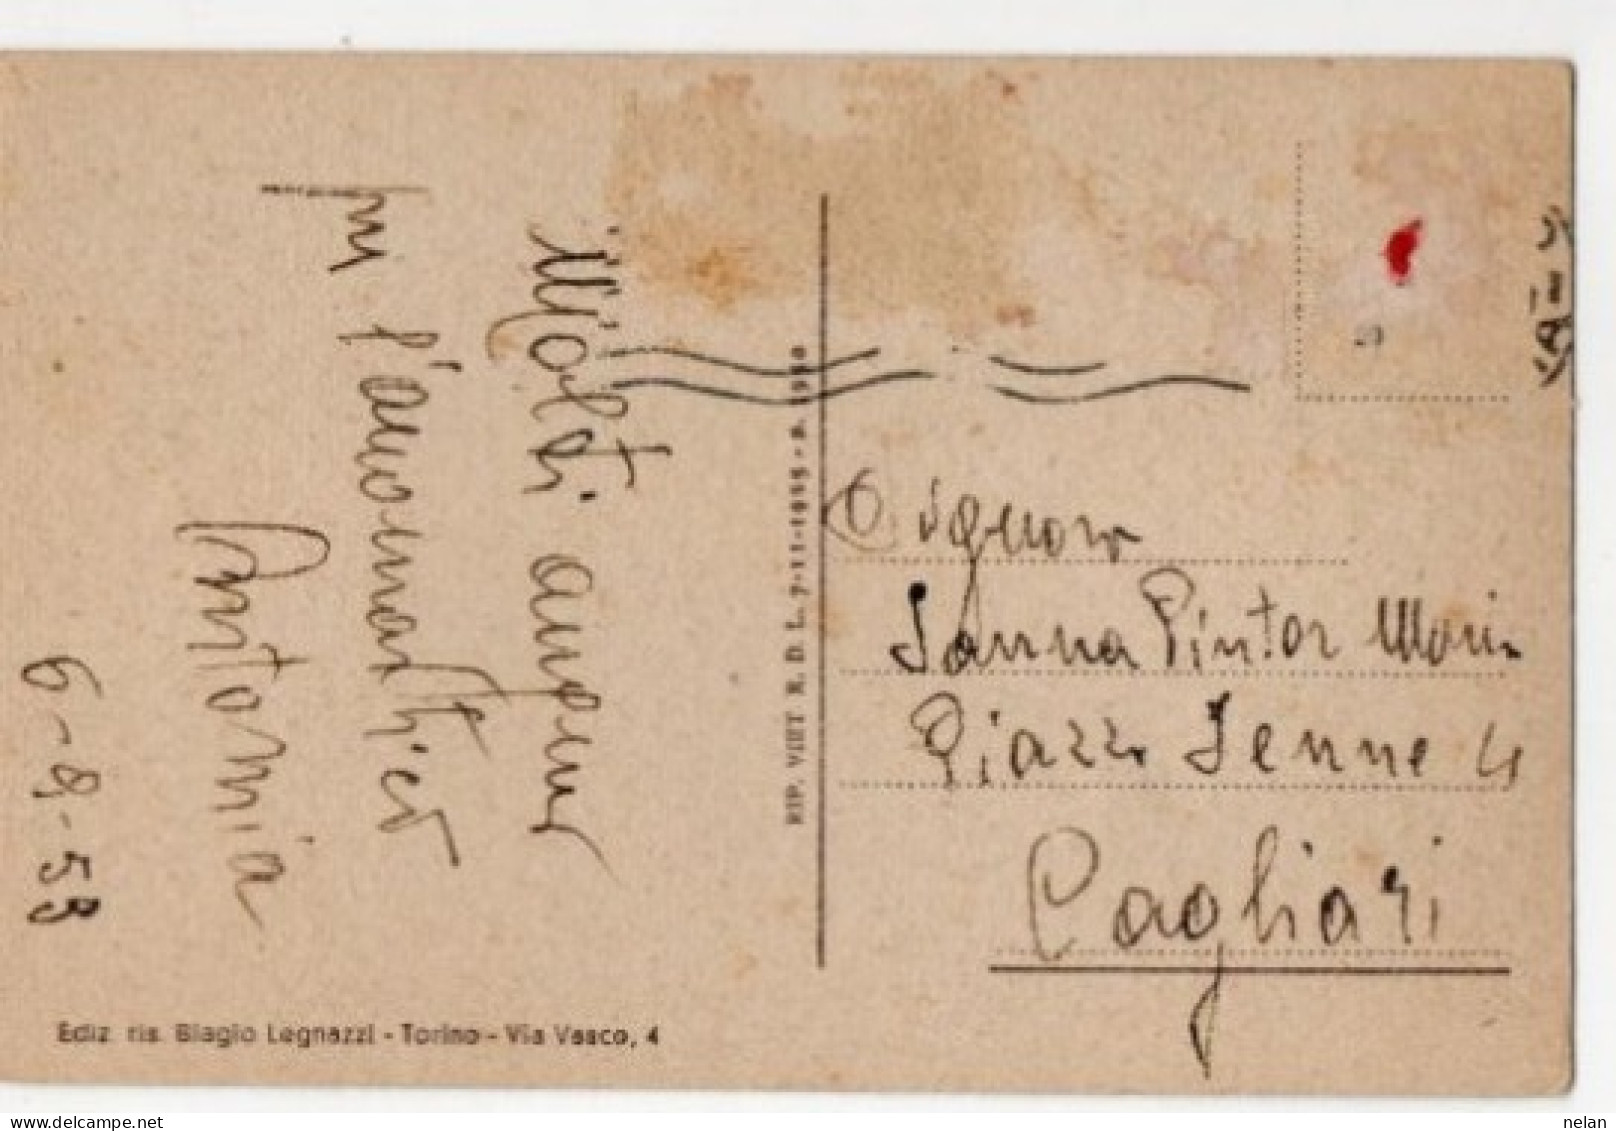 Molti auguri
per l'onomastico
Antonia
6-8-53
RIP. VIET R. D. L. 7-11-1925 - n. 1950
Signora
Sanna Pintor Maria
Piazza Jenne 4
Cagliari
Ediz. ris. Biagio Legnazzi - Torino - Via Vasco, 4
nelan